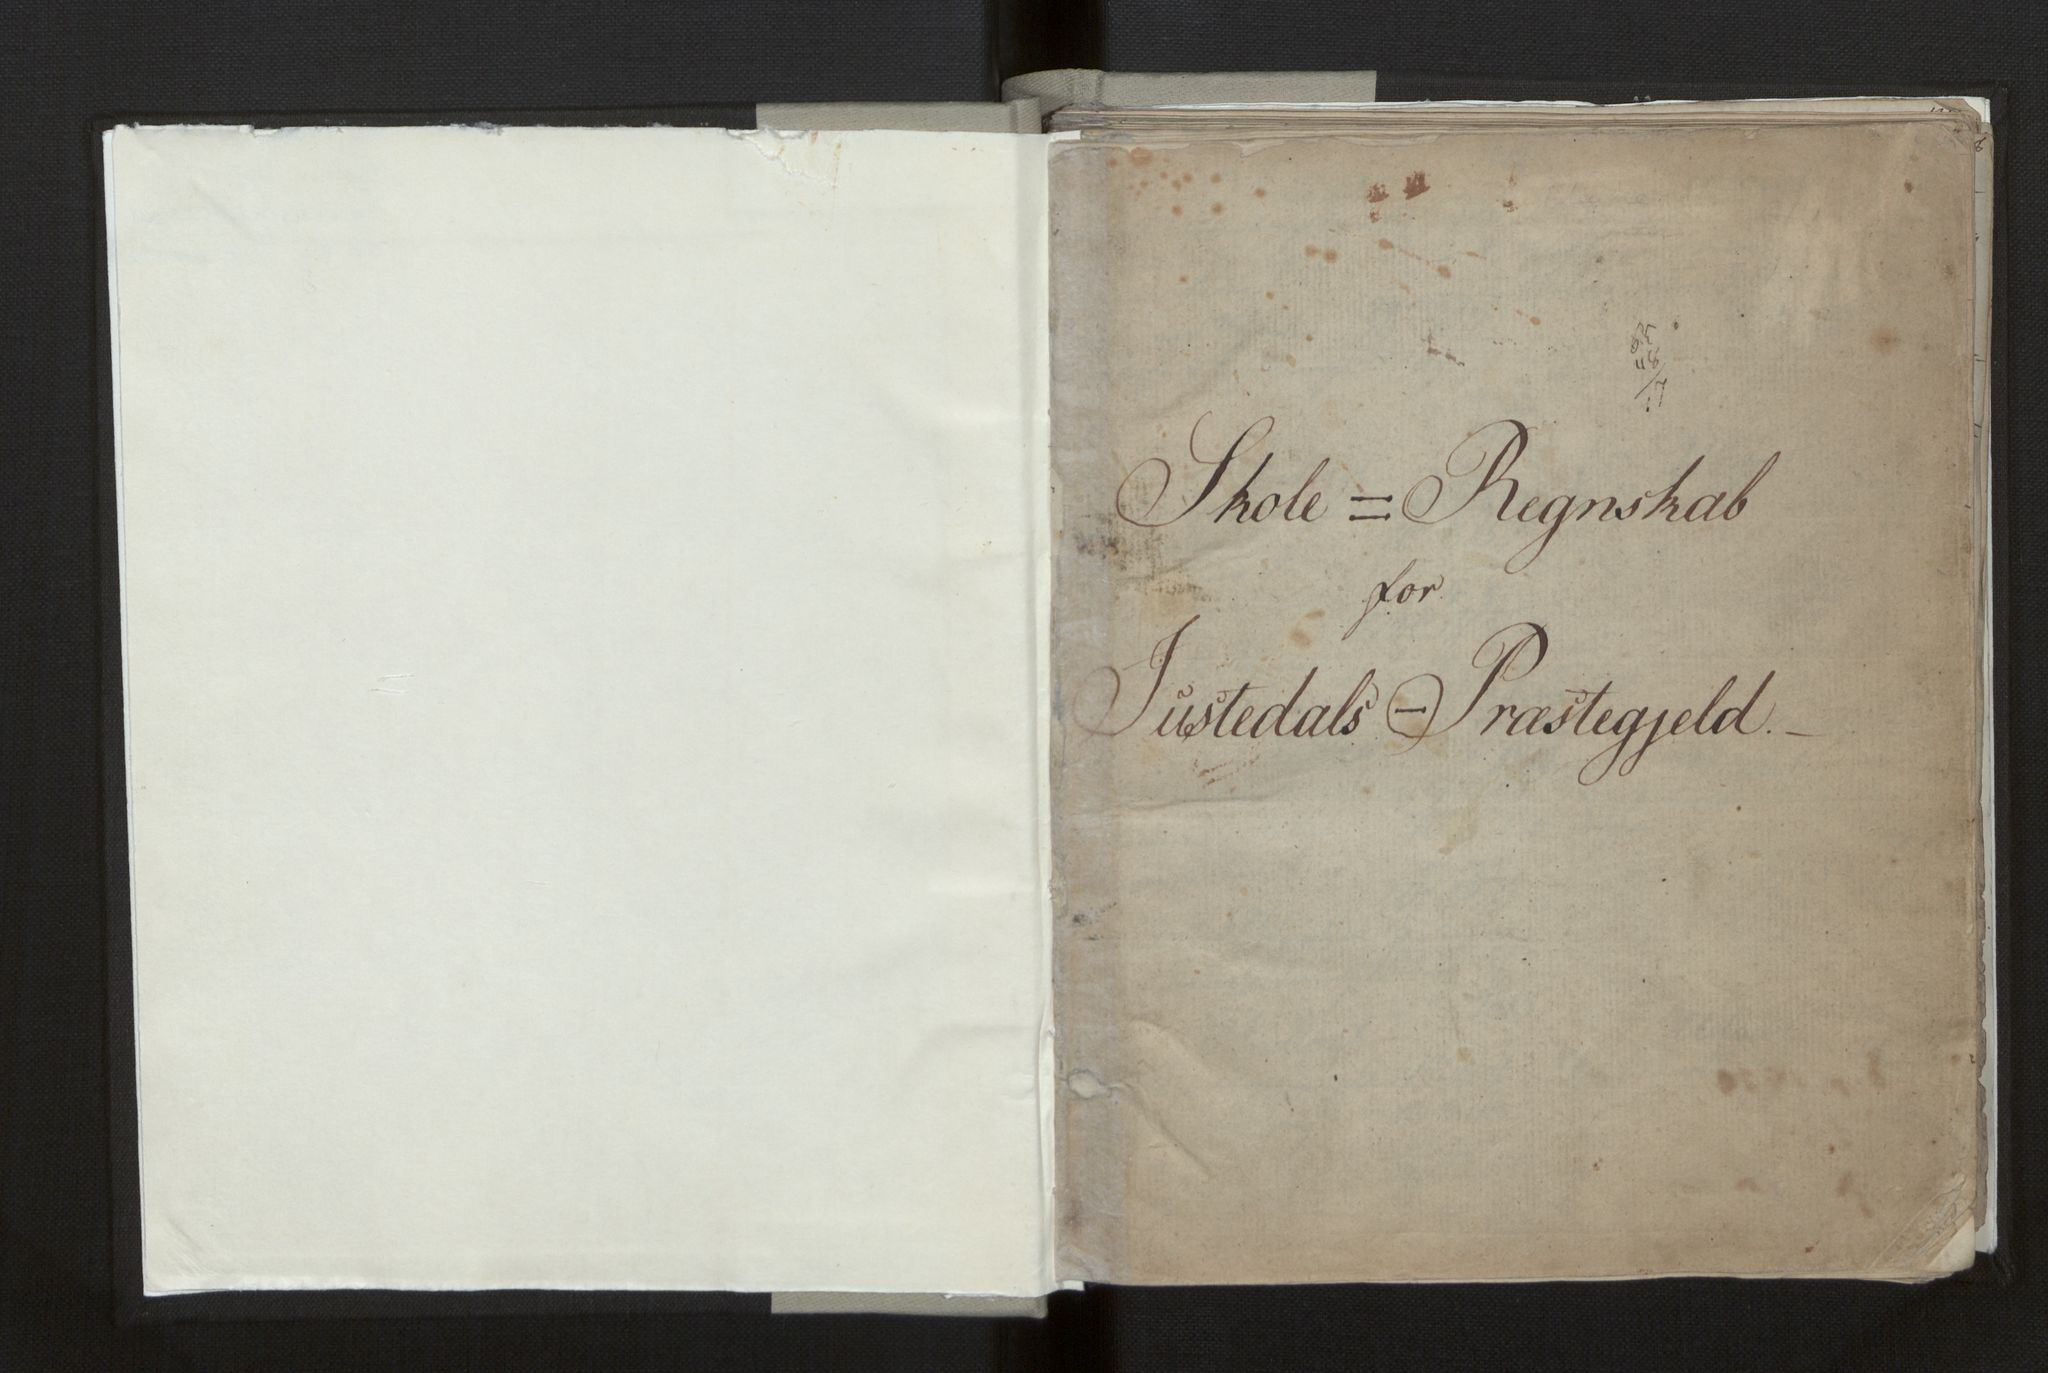 Skole = Regnskab
for
Justedals - Præstegjeld. -